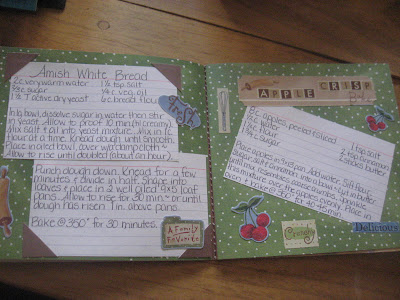 Amish White Bread
2 c. very warm water 1½ tsp salt
⅔ c. sugar ¼ c. veg. oil
1½ T active dry yeast 6 c. bread flour
In a bowl, dissolve sugar in water then stir
in yeast. Allow to proof 10 min (til creamy)
Mix salt & oil into yeast mixture. Mix in 1 c.
flour at a time. Knead dough until smooth.
Place in oiled bowl, cover w/ damp cloth &
allow to rise until doubled (about an hour).
Punch down dough. Knead for a few
minutes & divide in half. Shape into
loaves & place in 2 well oiled 9x5 loaf
pans. Allow to rise for 30 min or until
dough has risen 1 in. above pans.
Bake @ 350° for 30 minutes.
A Family
Favorite
APPLE CRISP
apples, peeled & sliced 1 tsp salt
water 2 tsp cinnamon
flour 2 sticks butter
sugar
Place apples in 9x13 pan. Add water. Sift flour,
sugar, salt & cinnamon into a bowl. Cut in butter
until mix resembles coarse crumbs. Sprinkle
this mixture over the apples evenly. Place in
oven & bake @ 350° for 40-45 min.
Crunchy
Delicious